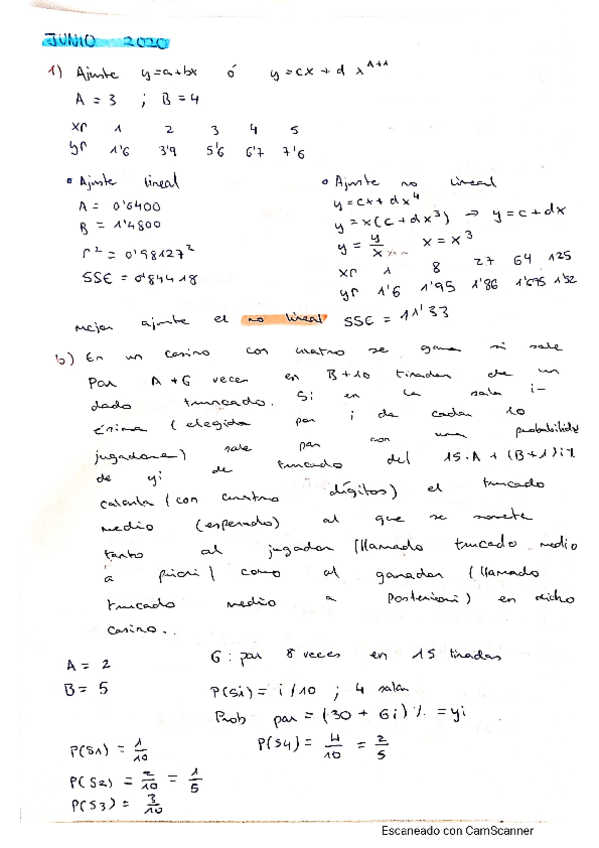 JUNIO 2020
1) Ajuste y=a+bx ó y=cx+d x^A+1
A=3 ; B=4
xr 1 2 3 4 5
yr 1'6 3'9 5'6 6'7 7'6
• Ajuste lineal
A = 0'6400
B = 1'4800
r² = 0'98127²
SSE = 0'84418
• Ajuste no lineal
y=cx+dx⁴
y=x(c+dx³) ⇒ y=c+dx
y = y/x x = x³
xr 1 8 27 64 125
yr 1'6 1'95 1'86 1'675 1'52
mejor ajuste el no lineal SSE = 11'33
b) En un casino con cuatro se gana si sale
Par A+6 veces en B+10 tiradas de un
dado truncado. Si en la sala i-
ésima (elegida por i de cada 10
jugadores) sale par con una probabilidad
de yi de truncado del 15·A+(B+1)i%
calcula (con cuatro dígitos) el truncado
medio (esperado) al que se somete
tanto al jugador (llamado truncado medio
a priori) como al ganador (llamado
truncado medio a posteriori) en dicho
casino..
A = 2
B = 5
G: par 8 veces en 15 tiradas
P(Si) = i/10 ; 4 salas
Prob par = (30 + 6i)% = yi
P(S1) = 1/10
P(S4) = 4/10 = 2/5
P(S2) = 2/10 = 1/5
P(S3) = 3/10
Escaneado con CamScanner